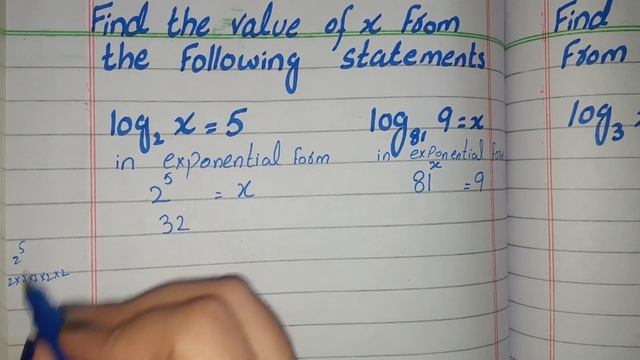 Find the value of x from
the following statements
log₂ x = 5
in exponential form
2⁵ = x
32
2⁵
2x2x2x2x2
log₈₁ 9 = x
in exponential form
81ˣ = 9
Find
From
log₃